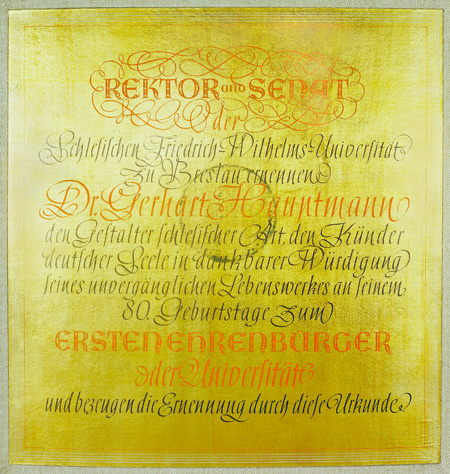 REKTOR und SENAT
der
Schlesischen Friedrich-Wilhelms-Universität
zu Breslau ernennen
Dr. Gerhart Hauptmann
den Gestalter schlesischer Art, den Künder
deutscher Seele in dankbarer Würdigung
seines unvergänglichen Lebenswerkes an seinem
80. Geburtstage zum
ERSTEN EHRENBÜRGER
der Universität
und bezeugen die Ernennung durch diese Urkunde.